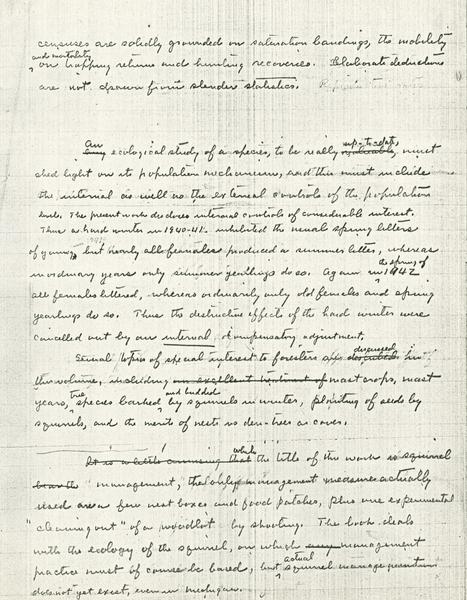 censuses are solidly grounded on saturation bandings, the mobility
and mortality
on trapping returns and hunting recoveries. Elaborate deductions
are not drawn from slender statistics.
An
Any ecological study of a species, to be really valuable, up-to-date, must
shed light on its population mechanisms, and this must include
the internal as well as the external controls of the population
level. The present work discloses internal controls of considerable interest.
Thus a hard winter in 1940-41 inhibited the usual spring litters
of young, but nearly all females produced a summer litter, whereas
in ordinary years only summer yearlings do so. Again in the spring of 1942
all females littered, whereas ordinarily only old females and spring
yearlings do so. Thus the destructive effects of the hard winter were
cancelled out by an internal, compensatory adjustment.
Several topics of special interest to foresters are described discussed in
this volume, including an excellent treatment of mast crops, mast
years, tree species barked and budded by squirrels in winter, planting of seeds by
squirrels, and the merits of nests vs den-trees as cover.
It is a little amusing that while the title of the work is squirrel
"management", the only management measures actually
used are a few nest boxes and food patches, plus one experimental
"cleaning out" of a woodlot by shooting. The book deals
with the ecology of the squirrel, on which any management
practice must of course be based, but actual squirrel management
does not yet exist, even in Michigan.